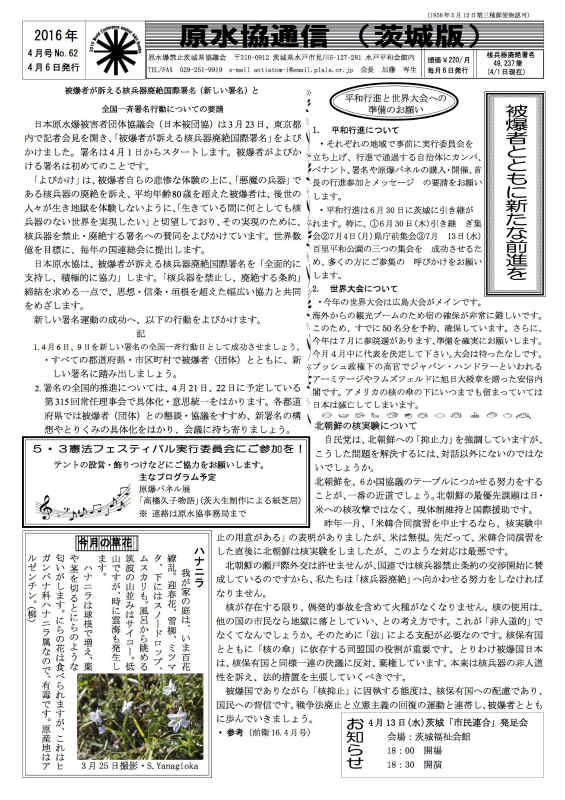 (1959年5月12日第三種郵便物認可)
2016年
4月号No.62
4月6日発行
原水協通信 (茨城版)
原水爆禁止茨城県協議会 〒310-0912 茨城県水戸市見川5-127-281 水戸平和会館内
TEL/FAX 029-251-9919 e-mail antiatom-i@email.plala.or.jp 会長 加藤 岑生
頒価¥220/月
毎月6日発行
核兵器廃絶署名
49,237筆
(4/1日現在)
被爆者が訴える核兵器廃絶国際署名(新しい署名)と
全国一斉署名行動についての要請
日本原水爆被害者団体協議会(日本被団協)は3月23日、東京都
内で記者会見を開き、「被爆者が訴える核兵器廃絶国際署名」をよび
かけました。署名は4月1日からスタートします。被爆者がよびか
ける署名は初めてのことです。
「よびかけ」は、被爆者自らの悲惨な体験の上に、「悪魔の兵器」で
ある核兵器の廃絶を訴え、平均年齢80歳を超えた被爆者は、後世の
人々が生き地獄を体験しないように、「生きている間に何としても核
兵器のない世界を実現したい」と切望しており、その実現のために、
核兵器を禁止・廃絶する署名への賛同をよびかけています。世界数
億を目標に、毎年の国連総会に提出します。
日本原水協は、被爆者が訴える核兵器廃絶国際署名を「全面的に
支持し、積極的に協力」します。「核兵器を禁止し、廃絶する条約」
締結を求める一点で、思想・信条・垣根を超えた幅広い協力と共同
をめざします。
新しい署名運動の成功へ、以下の行動をよびかけます。
記
1.4月6日、9日を新しい署名の全国一斉行動日として成功させましょう。
・すべての都道府県・市区町村で被爆者(団体)とともに、新
しい署名に踏み出しましょう。
2.署名の全国的推進については、4月21日、22日に予定している
第315回常任理事会で具体化・意思統一をはかります。各都道
府県では被爆者(団体)との懇談・協議をすすめ、新署名の構
想やとりくみの具体化をはかり、会議に持ち寄りましょう。
5・3憲法フェスティバル実行委員会にご参加を!
テントの設営・飾りつけなどにご協力をお願いします。
主なプログラム予定
原爆パネル展
「高橋久子物語」(茨大生制作による紙芝居)
※ 連絡は原水協事務局まで
今月の草花
ハナニラ
我が家の庭は、いま百花
繚乱。迎春花、雪柳、ミツマ
タ、下にはスノードロップ、
ムスカリも。風呂から眺める
筑波の山並みはサイコー。低
山ですが、時に雲海も発生し
ます。
ハナニラは球根で増え、葉
や茎を切るとにらのような
匂いがします。にらの花は食べられますが、これはヒ
ガンバナ科ハナニラ属なので、有毒です。原産地はア
ルゼンチン。(柳)
3月25日撮影・S.Yanagioka
平和行進と世界大会への
準備のお願い
1. 平和行進について
・それぞれの地域で事前に実行委員会を
立ち上げ、行進で通過する自治体にカンパ、
ペナント、署名や原爆パネルの購入・開催、首
長の行進参加とメッセージ の要請をお願い
します。
・平和行進は6月30日に茨城に引き継が
れます。特に、①6月30日(木)引き継 ぎ集
会②7月4日(月)県庁前集会③7月 13日(水)
百里平和公園の三つの集会を 成功させるた
め、多くの方にご参集の 呼びかけをお願い
します。
2. 世界大会について
・今年の世界大会は広島大会がメインです。
海外からの観光ブームのため宿の確保が非常に難しいです。
このため、すでに50名分を予約、確保しています。さらに、
今年は7月に参院選があります。準備を確実にお願いします。
今月4月中に代表を決定して下さい。大会は待ったなしです。
ブッシュ政権下の高官でジャパン・ハンドラーといわれる
アーミテージやラムズフェルドに旭日大綬章を贈った安倍内
閣です。アメリカの核の傘の下にいつまでも留まっていては
日本は滅亡してしまいます。
被爆者とともに新たな前進を
北朝鮮の核実験について
自民党は、北朝鮮への「抑止力」を強調していますが、
こうした問題を解決するには、対話以外にないのではな
いでしょうか。
北朝鮮を、6か国協議のテーブルにつかせる努力をする
ことが、一番の近道でしょう。北朝鮮の最優先課題は日・
米への核攻撃ではなく、現体制維持と国際援助です。
昨年一月、「米韓合同演習を中止するなら、核実験中
止の用意がある」の表明がありましたが、米は無視。先だって、米韓合同演習を
した直後に北朝鮮は核実験をしましたが、このような対応は最悪です。
北朝鮮の瀬戸際外交は許せませんが、国連では核兵器禁止条約の交渉開始に賛
成しているのですから、私たちは「核兵器廃絶」へ向かわせる努力をしなければ
なりません。
核が存在する限り、偶発的事故を含めて火種がなくなりません。核の使用は、
他の国の市民なら地獄に落としていい、との考え方です。これが「非人道的」で
なくてなんでしょうか。そのために「法」による支配が必要なのです。核保有国
とともに「核の傘」に依存する同盟国の役割が重要です。とりわけ被爆国日本
は、核保有国と同様一連の決議に反対、棄権しています。本来は核兵器の非人道
性を訴え、法的措置を主張していくべきです。
被爆国でありながら「核抑止」に固執する態度は、核保有国への配慮であり、
国民への背信です。戦争法廃止と立憲主義の回復の運動と連帯し、被爆者ととも
に歩んでいきましょう。
・参考(前衛16.4月号)
お知らせ
4月13日(水)茨城「市民連合」発足会
会場:茨城福祉会館
18:00 開場
18:30 開演